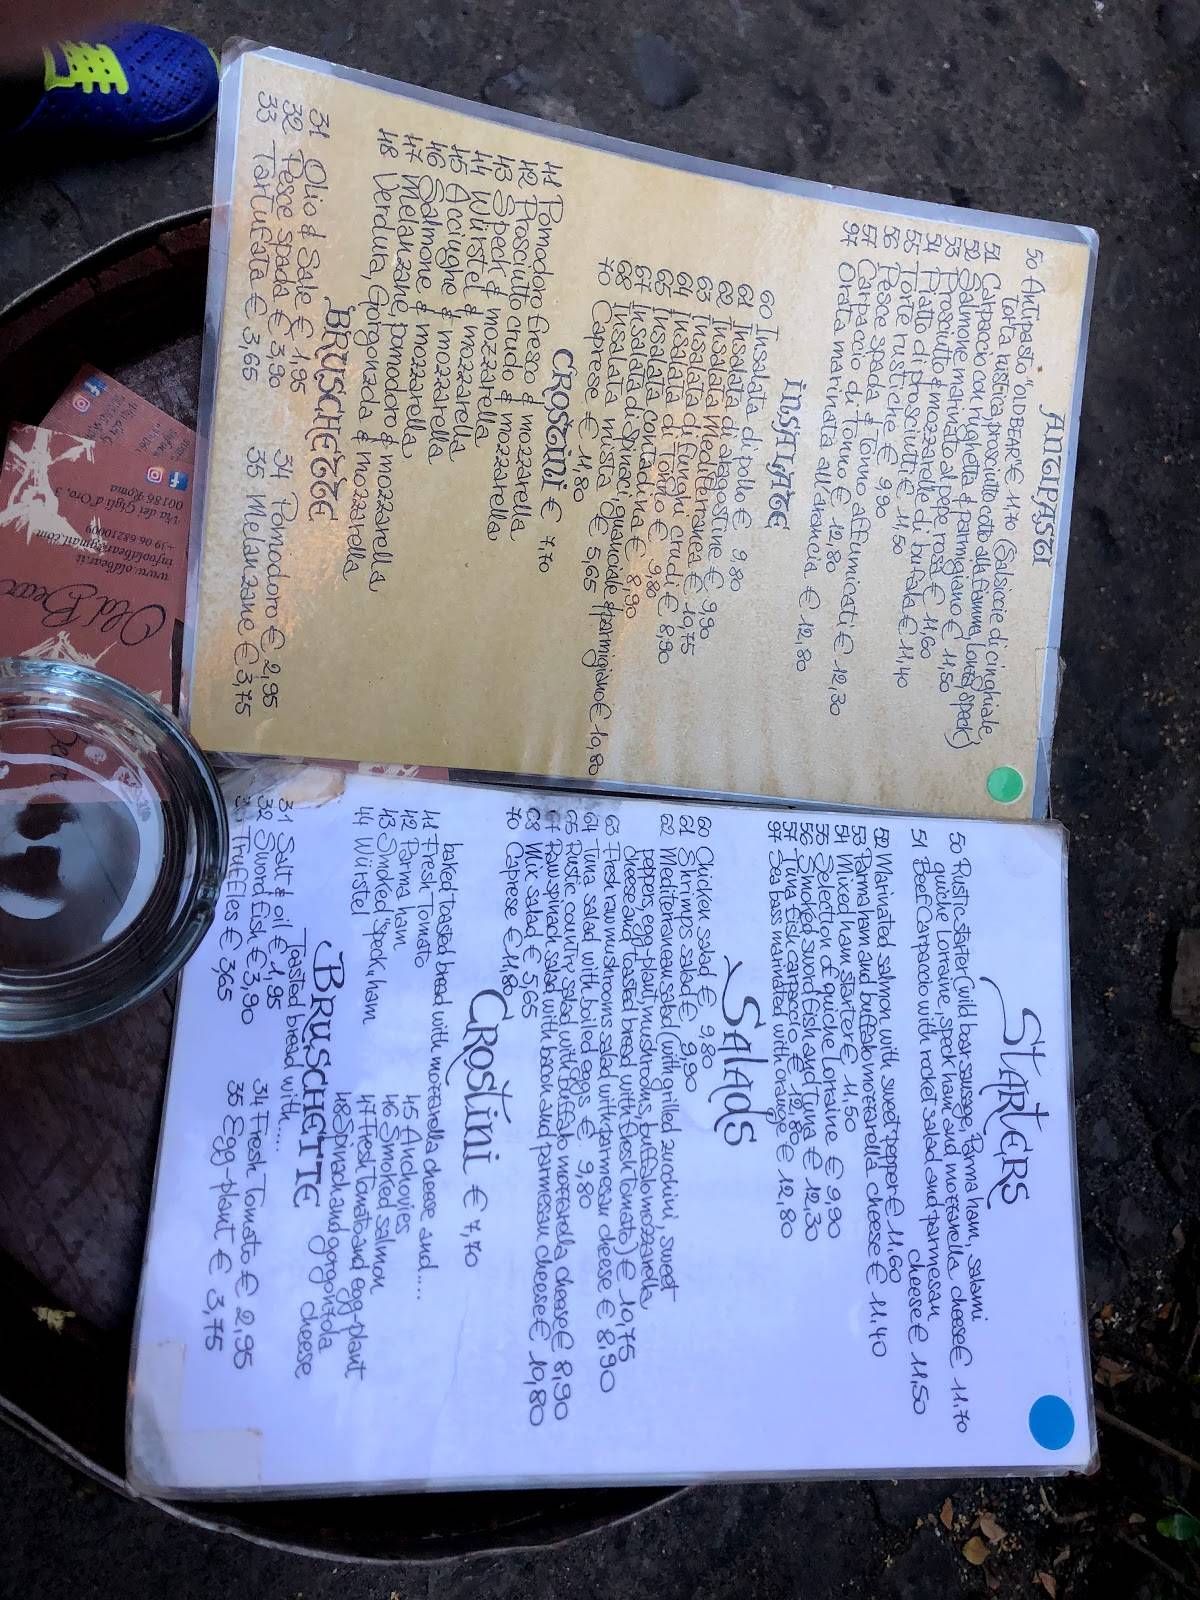 ANTIPASTI
50 Antipasto "OLD BEAR" € 11.70 (Salsiccie di cinghiale,
Torta rustica, prosciutto cotto alla fiamma, lonza, speck)
51 Carpaccio con rughetta & parmigiano € 11.50
52 Salmone marinato al pepe rosa € 11,60
53 Prosciutto & mozzarella di bufala € 11,40
54 Piatto di prosciutti € 11,50
55 Torte rustiche € 9,90
56 Pesce spada & tonno affumicati € 12,30
57 Carpaccio di tonno € 12,80
97 Orata marinata all'arancia € 12,80
INSALATE
60 Insalata di pollo € 9,80
61 Insalata di mazzancolle € 9,90
62 Insalata Mediterranea € 10,75
63 Insalata di funghi crudi € 8,90
64 Insalata di Tonno € 9,80
65 Insalata contadina € 8,90
67 Insalata di spinaci, guanciale & parmigiano € 10,80
68 Insalata mista € 5,65
70 Caprese € 11,80
CROSTINI € 7,70
41 Pomodoro fresco & mozzarella
42 Prosciutto crudo & mozzarella
43 Speck & mozzarella
44 Würstel & mozzarella
45 Acciughe & mozzarella
46 Salmone & mozzarella
47 Melanzane, pomodoro & mozzarella
48 Verdura, Gorgonzola & mozzarella
BRUSCHETTE
31 Olio & Sale € 1,95
32 Pesce spada € 3,90
33 Tartufata € 3,65
34 Pomodoro € 2,95
35 Melanzane € 3,75
STARTERS
50 Rustic starter (wild boar sausage, Parma ham, salami
quiche Lorraine, speck ham and mozzarella cheese € 11.70
51 Beef Carpaccio with rocket salad and parmesan
cheese € 11,50
52 Marinated salmon with sweet pepper € 11.60
53 Parma ham and buffalo mozzarella cheese € 11.40
54 Mixed ham starter € 11.50
55 Selection of quiche Lorraine € 9,90
56 Smoked sword fish and tuna € 12,30
57 Tuna fish carpaccio € 12,80
97 Sea bass marinated with orange € 12,80
SALADS
60 Chicken salad € 9,80
61 Shrimps salad € 9,90
62 Mediterranean salad (with grilled zucchini, sweet
peppers, egg-plant, mushrooms, buffalo mozzarella
cheese and toasted bread with fresh tomato) € 10,75
63 Fresh raw mushrooms salad with parmesan cheese € 8,90
64 Tuna salad with boiled eggs € 9,80
65 Rustic country salad with Buffalo mozzarella cheese € 8,90
67 Raw spinach salad with bacon and parmesan cheese € 10,80
68 Mix salad € 5,65
70 Caprese € 11,80
CROSTINI € 7,70
baked toasted bread with mozzarella cheese and....
41 Fresh Tomato
42 Parma ham
43 Smoked "speck" ham
44 Würstel
45 Anchovies
46 Smoked salmon
47 Fresh Tomato and egg-plant
48 Spinach and gorgonzola
cheese
BRUSCHETTE
Toasted bread with....
31 Salt & oil € 1,95
32 Sword fish € 3,90
Truffles € 3,65
34 Fresh Tomato € 2,95
35 Egg-plant € 3,75
Old Bear
www.oldbear.it
infooldbear@gmail.com
+39 06 68210009
Via dei Gigli d'Oro, 3
00186 Roma